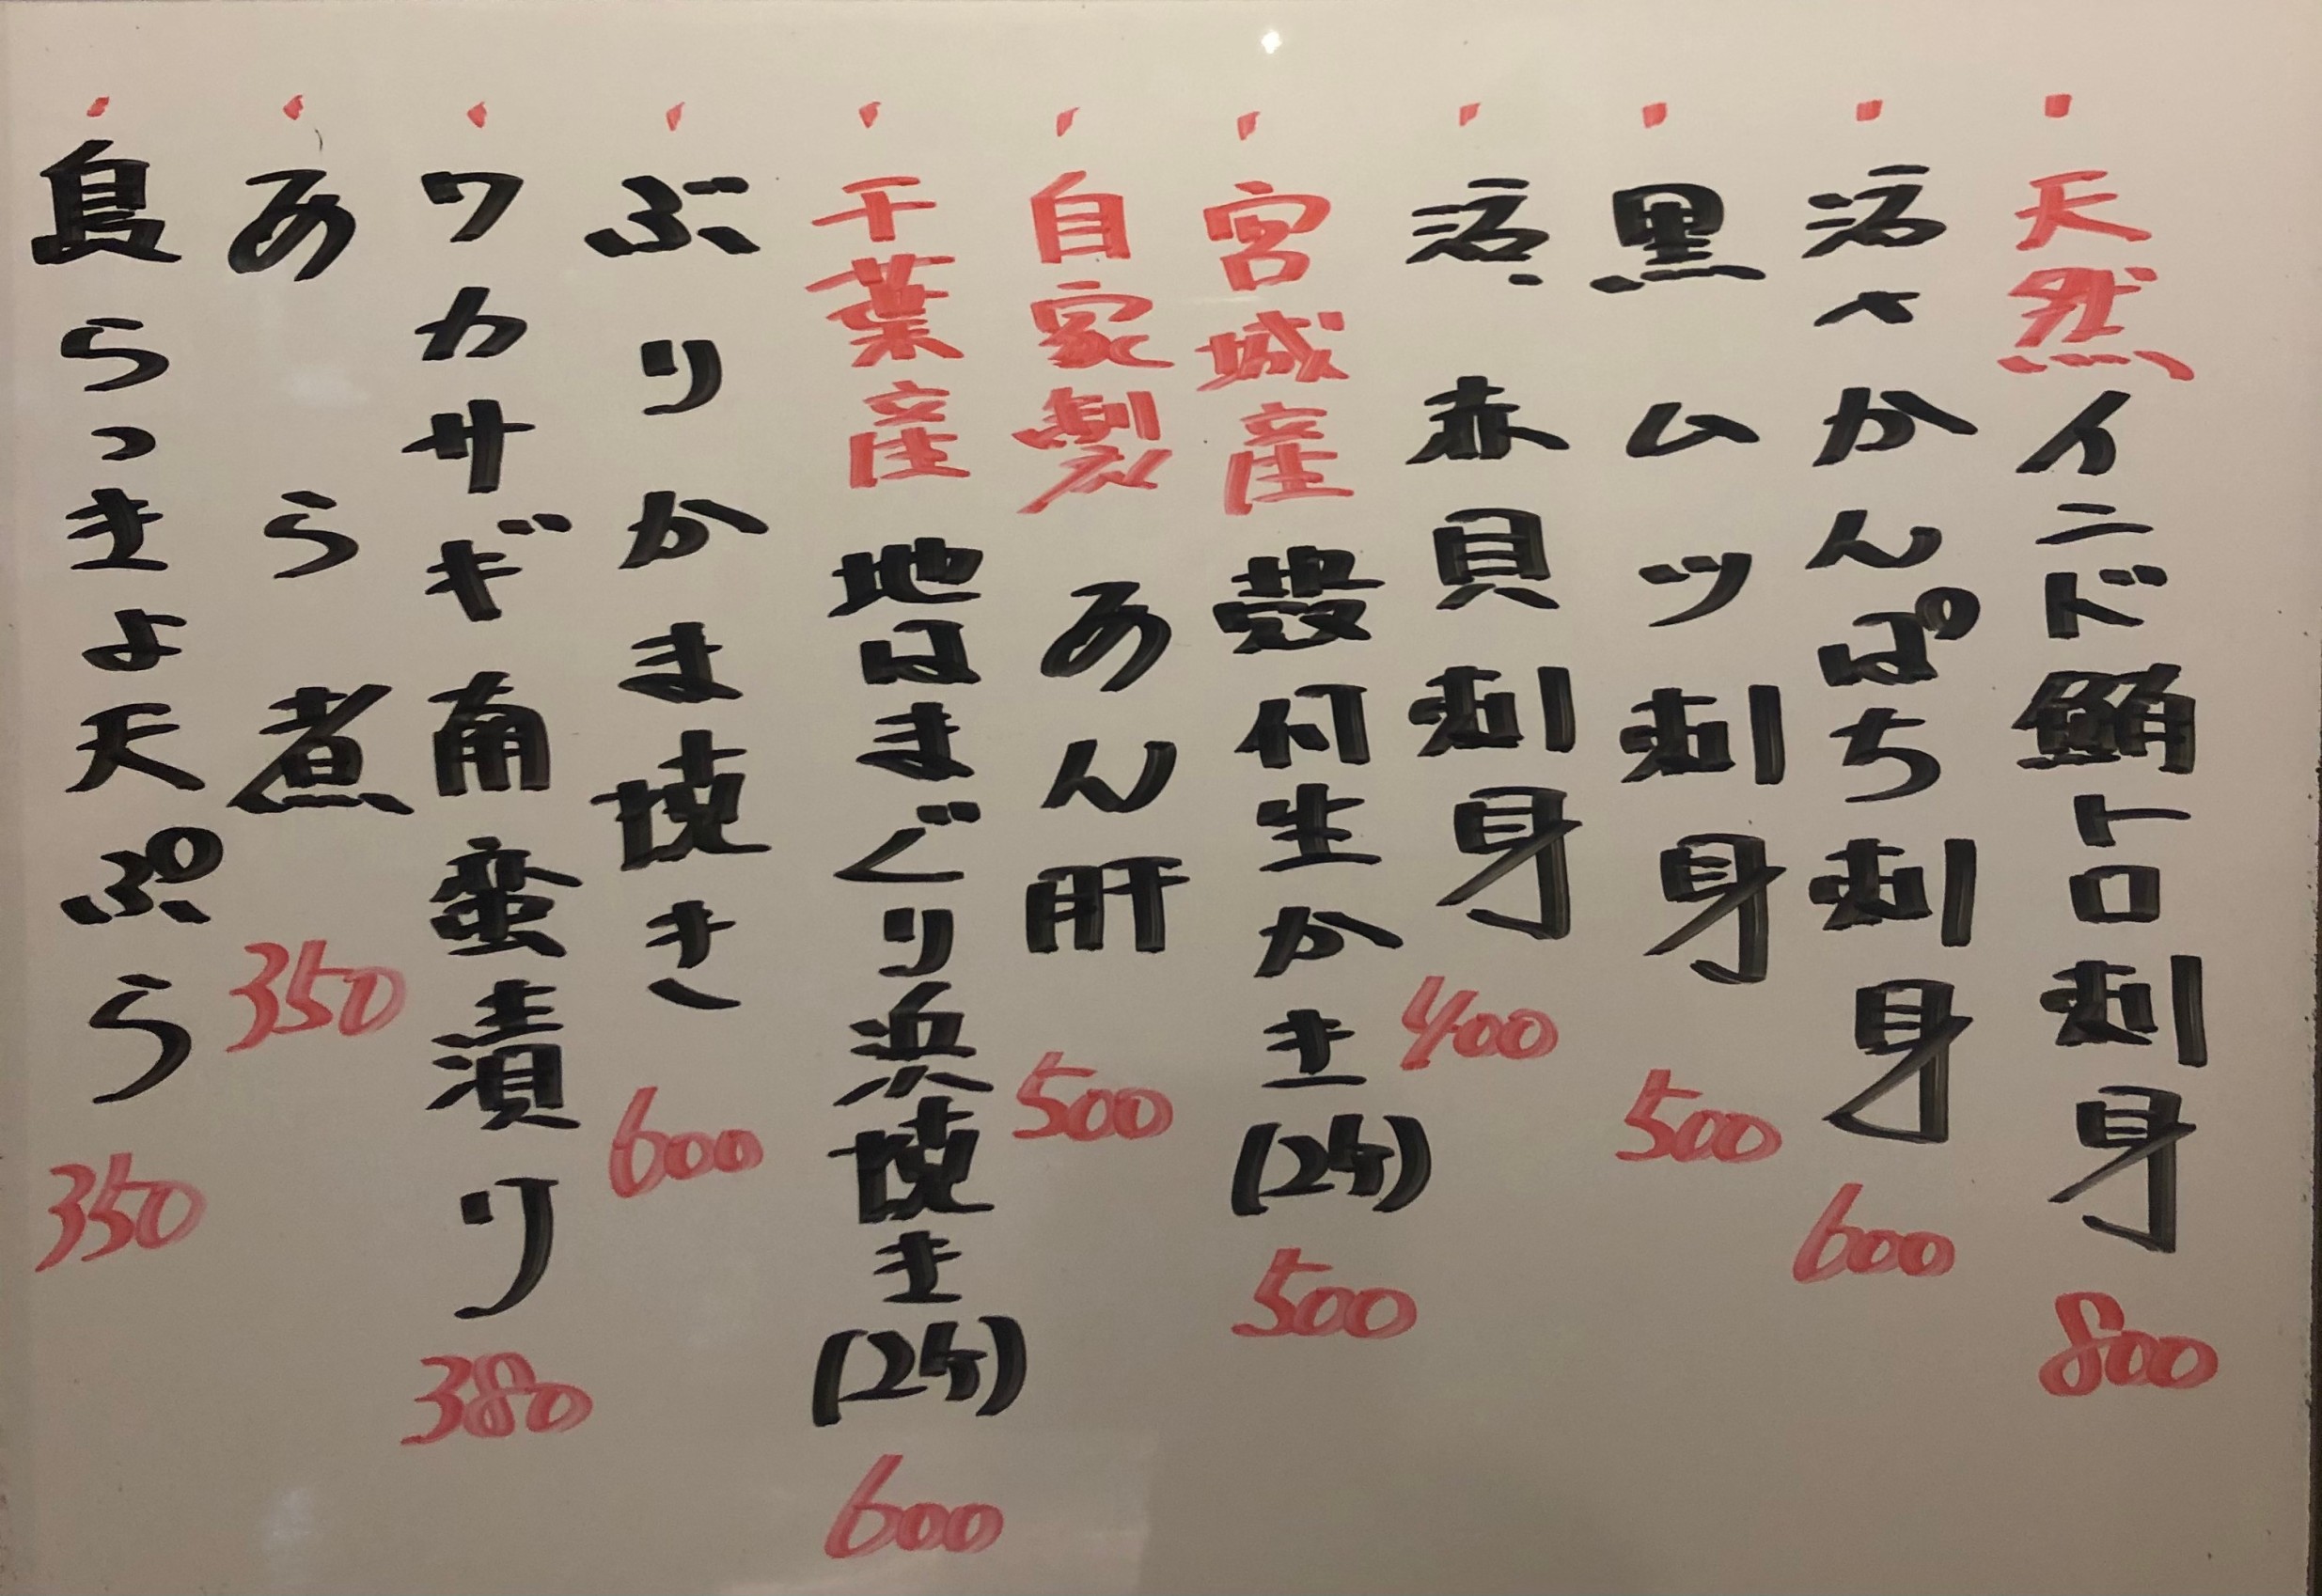 ・天然インド鮪トロ刺身 800
・活〆かんぱち刺身 600
・黒ムツ刺身 500
・活赤貝刺身 400
・宮城産殻付生かき(2ケ) 500
・自家製あん肝 500
・千葉産地はまぐり浜焼き(2ケ) 600
・ぶりかま焼き 600
・ワカサギ南蛮漬り 380
・あら煮 350
・島らっきょ天ぷら 350